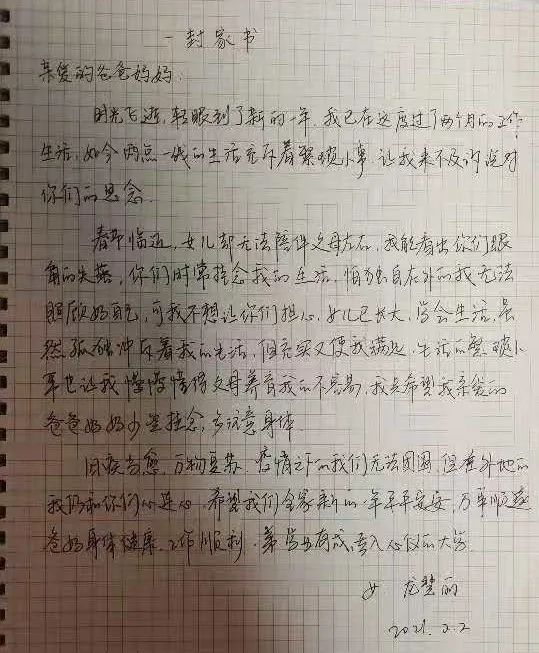 一封家书
亲爱的爸爸妈妈:
时光飞逝,转眼到了新的一年,我已在这度过了两个月的工作
生活,如今两点一线的生活充斥着繁琐小事,让我来不及诉说对
你们的思念。
春节临近,女儿却无法陪伴父母左右,我能看出你们眼
角的失落,你们时常挂念我的生活,怕独自在外的我无法
照顾好自己,可我不想让你们担心,女儿已长大,学会生活,虽
然孤独冲斥着我的生活,但充实又使我满足,生活的繁琐小
事也让我慢慢懂得父母养育我的不容易,我只希望我亲爱的
爸爸妈妈少些挂念,多注意身体。
旧疾当愈,万物复苏,疫情之下的我们无法团圆,但在外地的
我仍和你们心连心,希望我们全家新的一年平平安安,万事顺遂
爸妈身体健康,工作顺利,弟学业有成,考入心仪的大学。
女 龙慧丽
2021.2.2